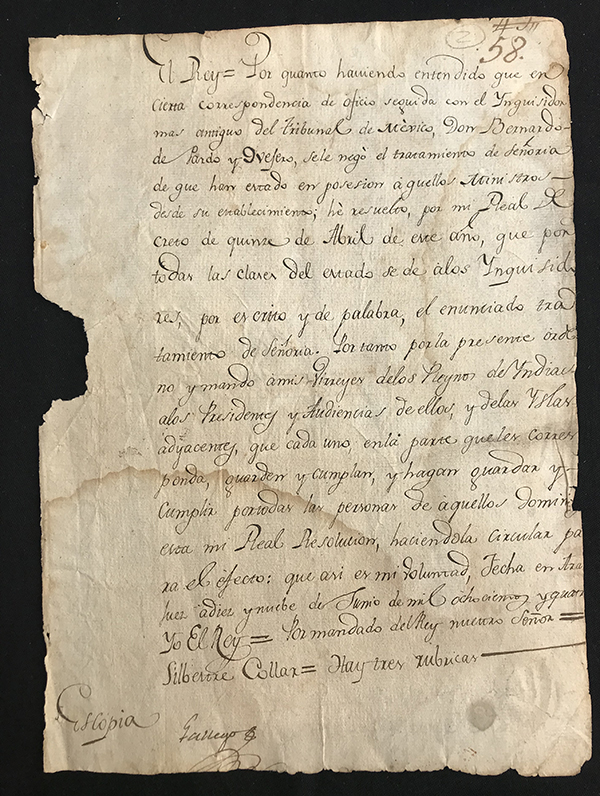 2
58.
El Rey= Por quanto haviendo entendido que en
cierta correspondencia de oficio seguida con el Ynquisidor
mas antiguo del Tribunal de Mèxico, Don Bernardo
de Pardo y Ovesero, sele negò el tratamiento de Señoria
de que han estado en posesion à quellos Ministros
desde su establecimiento; hè resuelto, por mi Real De
creto de quinze de Abril de este año, que por
todas las clases del estado se de àlos Ynquisido
res, por escrito y de palabra, el enunciado tra
tamiento de Señoria. Por tanto porla presente òrde
no y mando àmis Virreyes delos Reynos de Yndias
alos Presidentes y Audiencias de ellos, y delas Yslas
adyacentes, que cada uno, enlà parte queles corres
ponda, guarden y cumplan, y hagan guardar y
cumplir portodas las personas de àquellos domini
esta mi Real Resolucion, haciendola circular pa
ra el efecto: que asi es mi voluntad, Fecha en Aran
juez àdiez ynuebe de Junio de mil ochocientos y quatro
Yo El Rey= Por mandado del Rey nuestro Señor=
Silbestre Collar= Hay tres rubricas
Escòpia
Gallego